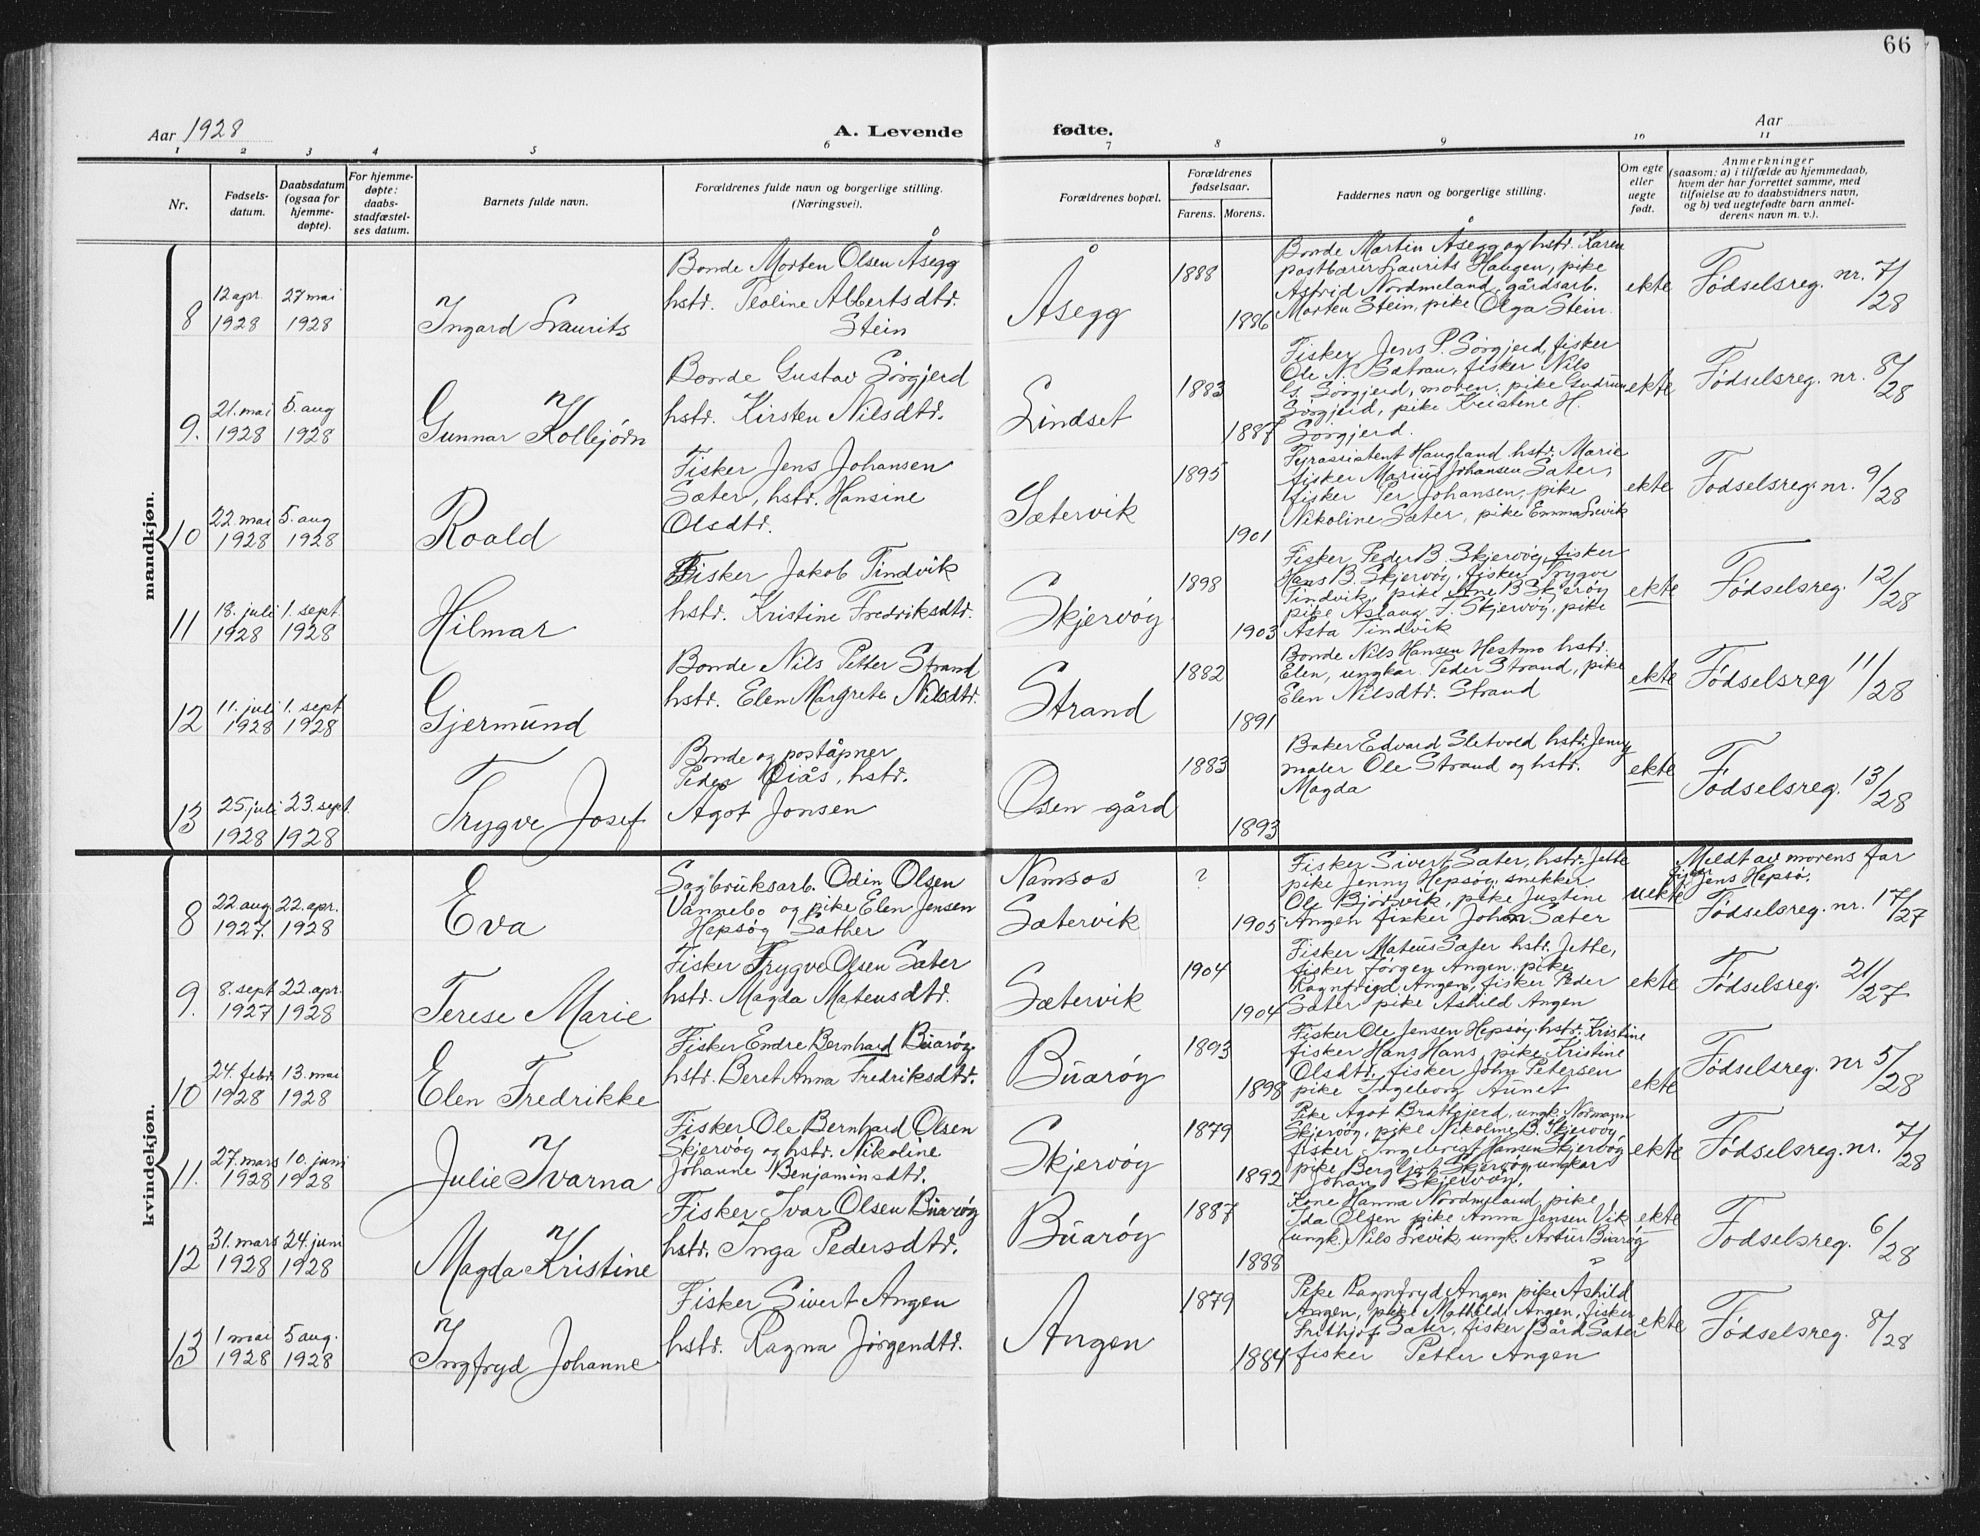 66
Aar 1928
A. Levende fødte.
Aar
1 2 3 4 5 6 7 8 9 10 11
Nr.
Fødsels-
datum.
Daabsdatum
(ogsaa for
hjemme-
døpte).
For hjemme-
døpte:
daabs-
stadfæstel-
ses datum.
Barnets fulde navn.
Forældrenes fulde navn og borgerlige stilling.
(Næringsvei).
Forældrenes bopæl.
Forældrenes
fødselsaar.
Farens. Morens.
Faddernes navn og borgerlige stilling.
Om egte
eller
uegte
født.
Anmerkninger
(saasom: a) i tilfælde av hjemmedaab,
hvem der har forrettet samme, med
tilføielse av to daabsvidners navn,
og b) ved uegtefødte barn anmel-
derens navn m. v.).
mandkjøn.
8
12 apr.
1928
27 mai
1928
Ingard Laurits
Bonde Morten Olsen Åsegg
hstr. Teoline Albertsdtr.
Stein
Åsegg
1888
1886
Bonde Martin Åsegg og hstr. Karen
postbærer Laurits Haugen, pike
Astrid Nordmeland, gårdsarb.
Morten Stein, pike Olga Stein.
ekte
Fødselsreg. nr. 7/28
9.
21. mai
1928
5. aug
1928
Gunnar Kollbjørn
Bonde Gustav Sørgjerd
hstr. Kirsten Nilsdtr.
Lindset
1883
1887
Fisker Jens P. Sørgjerd, fisker
Ole N. Sætran, fisker Nils
G. Sørgjerd, moren, pike Gudrun
Sørgjerd, pike Kristine H.
Sørgjerd.
ekte
Fødselsreg. nr. 8/28
10
22. mai
1928
5. aug
1928
Roald
Fisker Jens Johansen
Sæter, hstr. Hansine
Olsdtr.
Sætervik
1895
1901
Fyrassistent Haugland hstr. Marie
fisker Marius Johansen Sæter,
fisker Per Johansen, pike
Nikoline Sæter, pike Emma Srevik
ekte
Fødselsreg. nr. 9/28
11
18. juli
1928
1. sept.
1928
Hilmar
Fisker Jakob Tindvik
hstr. Kristine Fredriksdtr.
Skjervøy
1898
1903
Fisker Peder B. Skjervøy, fisker
Hans B. Skjervøy, fisker Trygve
Tindvik, pike Ane B Skjervøy
pike Aslaug J. Skjervøy, pike
Asta Tindvik
ekte
Fødselsreg. 12/28
12
11. juli
1928
1. sept
1928
Gjermund
Bonde Nils Petter Strand
hstr. Elen Margrete Nilsdtr.
Strand
1882
1891
Bonde Nils Hansen Hestmo hstr.
Elen, ungkar Peder Strand, pike
Elen Nilsdtr. Strand
ekte
Fødselsreg 11/28
13
25. juli
1928
23. sept.
1928
Trygve Josef
Bonde og poståpner
Peder Siås, hstr.
Agot Jonsen
Osen gård
1883
1893
Baker Edvard Sletvold hstr. Jenny
maler Ole Strand og hstr.
Magda
ekte
Fødselsreg. 13/28
kvindekjøn.
8
22 aug
1927.
22. apr.
1928
Eva
Sagbruksarb. Odin Olsen
Vannebo og pike Elen Jensen
Hepsøy Sæther
Namsos
Sætervik
?
1905
Fisker Sivert Sæter, hstr. Jette
pike Jenny Hepsøy, snekker
Ole Bjørsvik, pike Justine
Angen fisker Johan Sæter
uekte
Meldt av morens far
fisker Jens Hepsø.
Fødselsreg. nr. 17/27
9.
8. sept
1927
22. apr.
1928
Terese Marie
Fisker Trygve Olsen Sæter
hstr. Magda Mateusdtr.
Sætervik
1904
1904
Fisker Mateus Sæter hstr. Jette,
fisker Jørgen Angen, pike
Ragnfryd Angen, fisker Peder
Sæter pike Ashild Angen
ekte
Fødselsreg. 21/27
10
24. febr.
1928
13. mai
1928
Elen Fredrikke
Fisker Endre Bernhard Buarøy.
hstr. Beret Anna Fredriksdtr.
Buarøy
1893
1898
Fisker Ole Jensen Hepsøy. hstr. Kristine
fisker Hans Hans, pike Kristine
Olsdtr, fisker John Petersen
pike Ingeborg Aunet
ekte
Fødselsreg. nr 5/28
11.
27. mars
1928
10. juni
1928
Julie Ivarna
Fisker Ole Bernhard Olsen
Skjervøy og hstr. Nikoline
Johanne Benjaminsdtr.
Skjervøy
1879
1892
Pike Agot Brattgjerd, ungk. Normann
Skjervøy, pike Nikoline B. Skjervøy,
fisker Ingebrigt Hansen Skjervøy
pike Bergljot Skjervøy, ungkar
Johan Skjervøy.
ekte
Fødselsreg. nr. 7/28
12
31. mars
1928
24. juni
1928
Magda Kristine
Fisker Ivar Olsen Buarøy
hstr. Inga Pedersdtr.
Buarøy
1887
1888
Kone Hanna Nordmeland, pike
Ida Olsen pike Anna Jensen Vik
ungk. Nils Srevik ungk. Artur Buarøy
ekte
Fødselsreg. 6/28
13
1 mai
1928
5 aug.
1928
Ingfryd Johanne
Fisker Sivert Angen
hstr. Ragna Jørgendtr.
Angen
1879
1884
Pike Ragnfryd Angen pike Åshild
Angen, pike Mathilde Angen, fisker
Frithjof Sæter, fisker Bård Sæter
fisker Petter Angen
ekte
Fødselsreg. 8/28